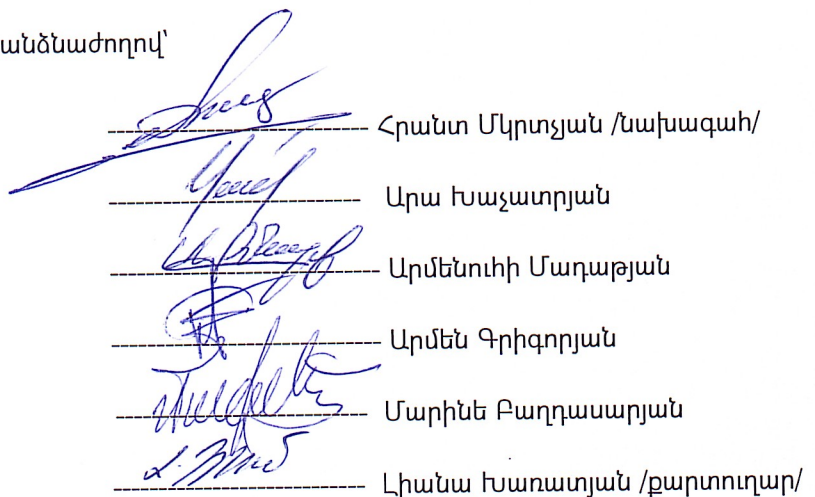 անձնաժողով՝
Հրանտ Մկրտչյան /նախագահ/
Արա Խաչատրյան
Արմենուհի Մադաթյան
Արմեն Գրիգորյան
Մարինե Բաղդասարյան
Լիանա Խառատյան /քարտուղար/